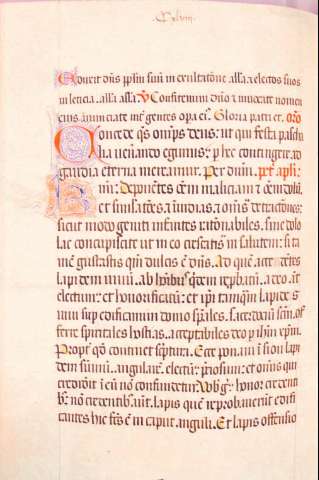 Eduxit dn̄s pplm̄ suū in exultatōne all̄a. et electos suos
in leticia. all̄a all̄a. V Confitemini dn̄o et inuocate nomen
eius anunciate int̄ gentes opa ei. Gloria patri et. Orō
Concede qs om̄ps deus: ut qui festa pasch
alia uen̄ando egimus: p hec contingere ad
gaudia eterna mereamur. Per dn̄m. pet̄ apl̄i
mi: Deponētes oēm maliciam et oēm dolū.
et simlatōes. et inuidias. et om̄is detractōnes:
sicut modo geniti infantes ratonabiles. sine dolo
lac concupiscite ut in eo crescatis in salutem: si ta
mē gustastis qm̄ dulcis ē dn̄s. Ad quē accedētes
lapidem uiuū. ab hoībus quidem repbatū. a deo aūt
electum: et honorificatū: et ip̄i tamqm̄ lapides
uiui sup edificamini domos sp̄ales. sacerdociū scm̄. of
ferre spiritales hostias. acceptabiles deo p ihm̄ xp̄m.
Propt̄ qd̄ continet sc̄ptura. Ecce ponam ī sion lapi
dem sūmū. angularē. electū: p̄ciosum: et omnis qui
crediderit ī eū nō confundetur. Uob̄ g: honor credenti
b: nō credentib: aūt. lapis quē rep̄robauerūt edifi
cantes hic fc̄s ē in caput anguli. Et lapis offensio